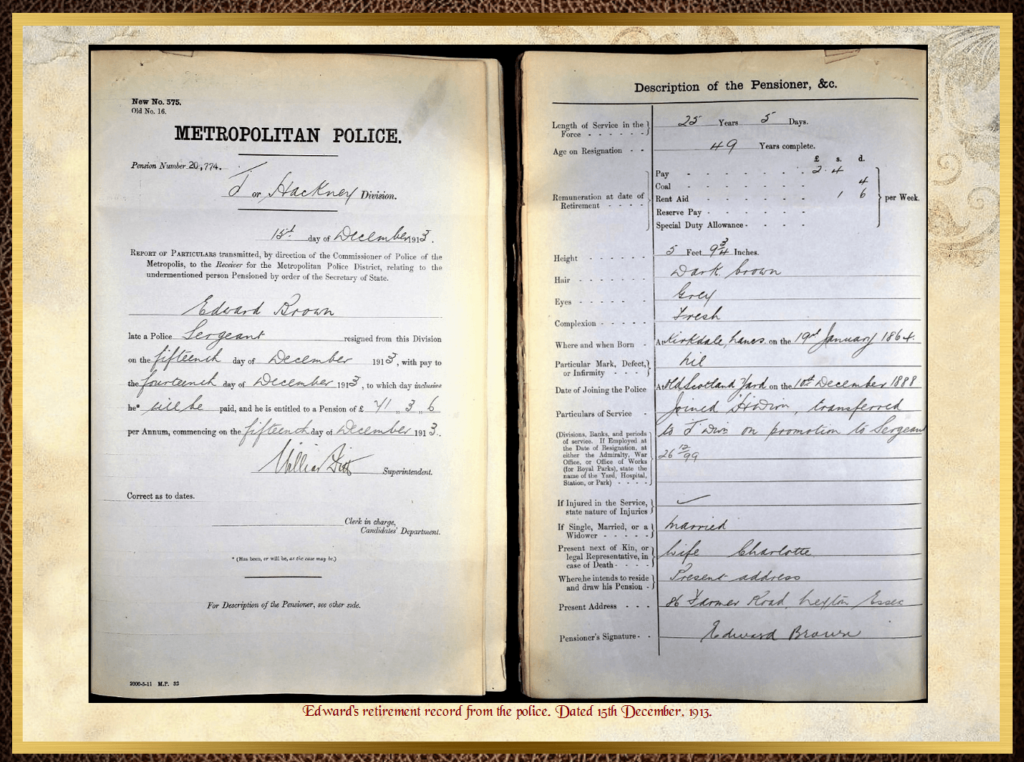 New No. 575.
Old No. 16.
METROPOLITAN POLICE.
Pension Number 20,774.
J or Hackney Division.
15th day of December 1913.
REPORT OF PARTICULARS transmitted, by direction of the Commissioner of Police of the
Metropolis, to the Receiver for the Metropolitan Police District, relating to the
undermentioned person Pensioned by order of the Secretary of State.
Edward Brown
late a Police Sergeant resigned from this Division
on the fifteenth day of December 1913, with pay to
the fourteenth day of December 1913, to which day inclusive
he* will be paid, and he is entitled to a Pension of £ 71 , 3 , 6
per Annum, commencing on the fifteenth day of December 1913.
Superintendent.
Correct as to dates.
Clerk in charge,
Candidates' Department.
* (Has been, or will be, as the case may be.)
For Description of the Pensioner, see other side.
M.P. 22
Description of the Pensioner, &c.
Length of Service in the Force - - - - - - 25 Years 5 Days.
Age on Resignation - - 49 Years complete.
£ s. d.
Remuneration at date of Retirement - - - -
Pay - - - - - - 2 4
Coal - - - - - - 4
Rent Aid - - - - - 1 6
per Week.
Reserve Pay - - - - -
Special Duty Allowance - - - -
Height - - - - - - 5 Feet 9 3/4 Inches.
Hair - - - - - - Dark brown
Eyes - - - - - - Grey
Complexion - - - - Fresh
Where and when Born - At Kirkdale, Lancs. on the 19th January 1864.
Particular Mark, Defect, or Infirmity - - - - nil
Date of Joining the Police At Old Scotland Yard on the 10th December 1888
Particulars of Service - Joined H Divn, transferred
(Divisions, Ranks, and periods of service. If Employed at the Date of Resignation, at either the Admiralty, War Office, or Office of Works (for Royal Parks), state the name of the Yard, Hospital, Station, or Park) - - - -
to J Divn on promotion to Sergeant
26 99
If Injured in the Service, state nature of Injuries
If Single, Married, or a Widower - - - - - Married
Present next of Kin, or legal Representative, in case of Death - - - - Wife Charlotte
Where he intends to reside and draw his Pension - Present address
Present Address - - - 86 Farmer Road, Leyton, Essex
Pensioner's Signature - - Edward Brown
Edward's retirement record from the police. Dated 15th December, 1913.